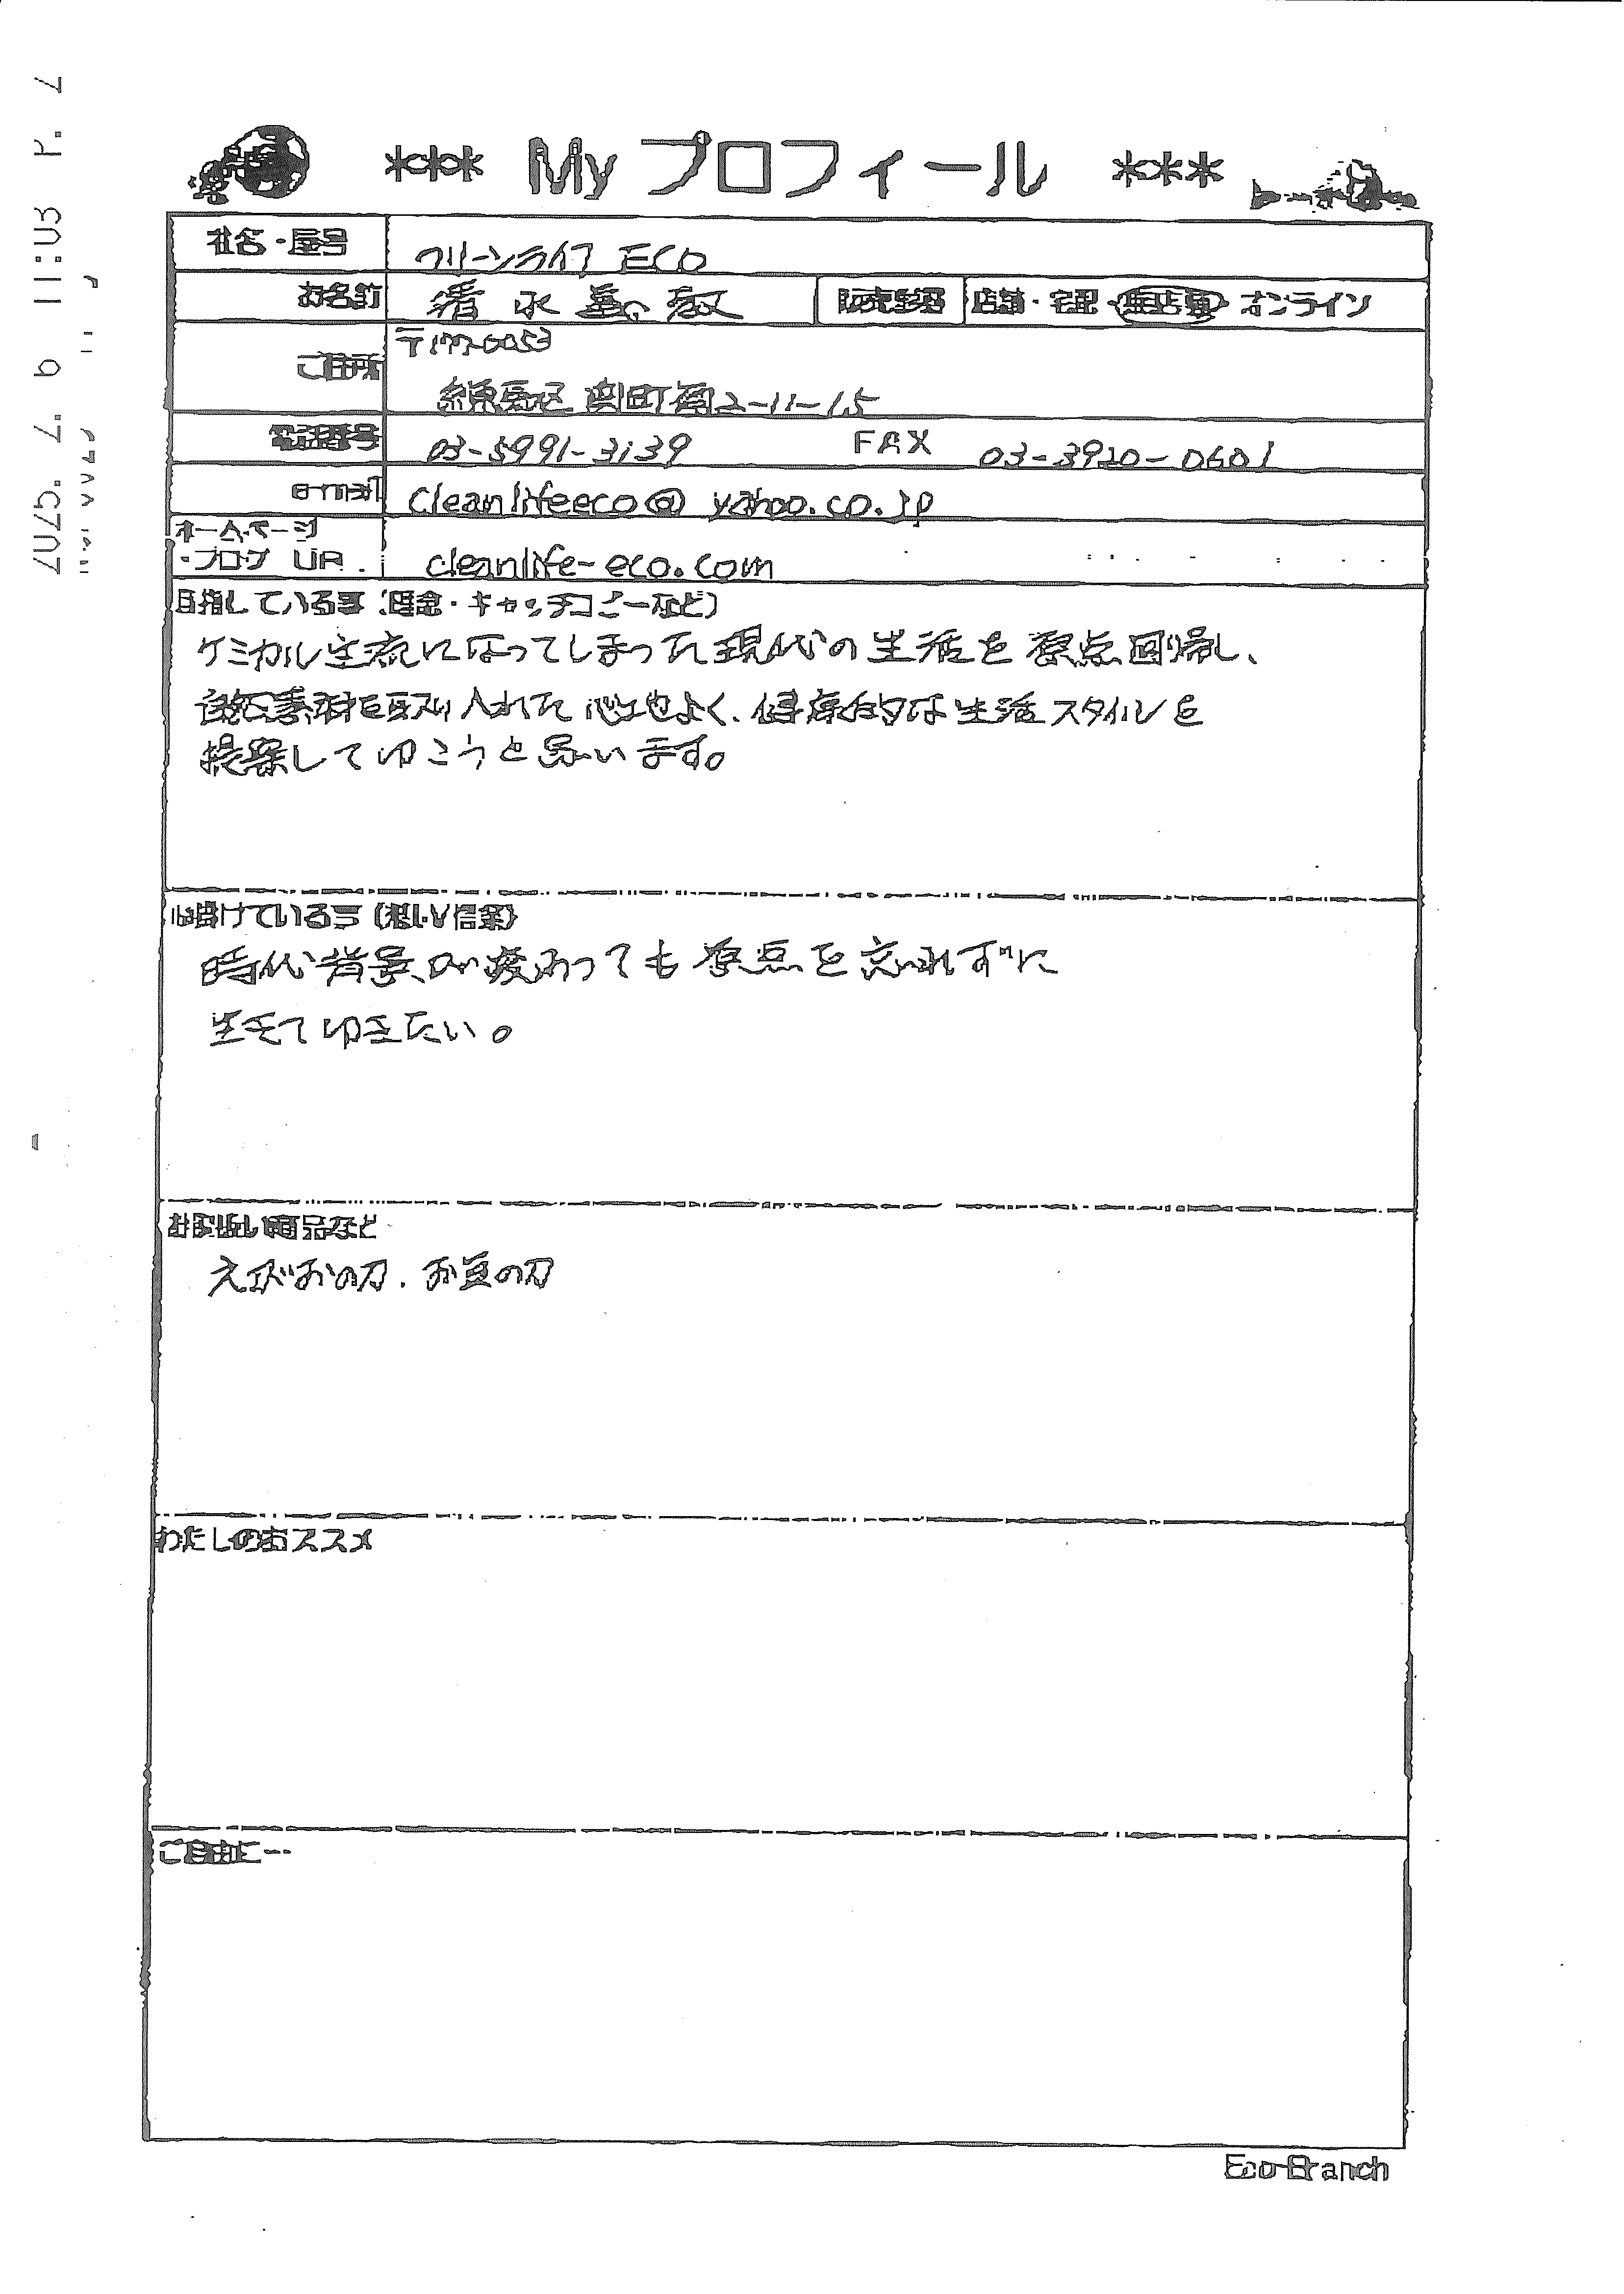 *** My プロフィール ***
社名・屋号 クリーンライフ ECO
お名前 清水 販売経路 店舗・宅配・無店舗・オンライン
ご住所 〒177-0053
練馬区関町南2-11-15
電話番号 03-5991-3139 FAX 03-3920-0601
e-mail cleanlifeeco@yahoo.co.jp
ホームページ
・ブログ UR cleanlife-eco.com
目指している事(理念・キャッチコピーなど)
ケミカル主流になってしまった現代の生活を原点回帰し、
自然素材を取り入れた心地よく、健康的な生活スタイルを
提案してゆこうと思います。
心掛けている事(想い/信条)
時代背景が変わっても原点を忘れずに
生きてゆきたい。
お取扱い商品など
えひめの力.お豆の力
わたしのおススメ
ご自由に…
Eco-Branch
2025. 2. 6 11:03 P. 2